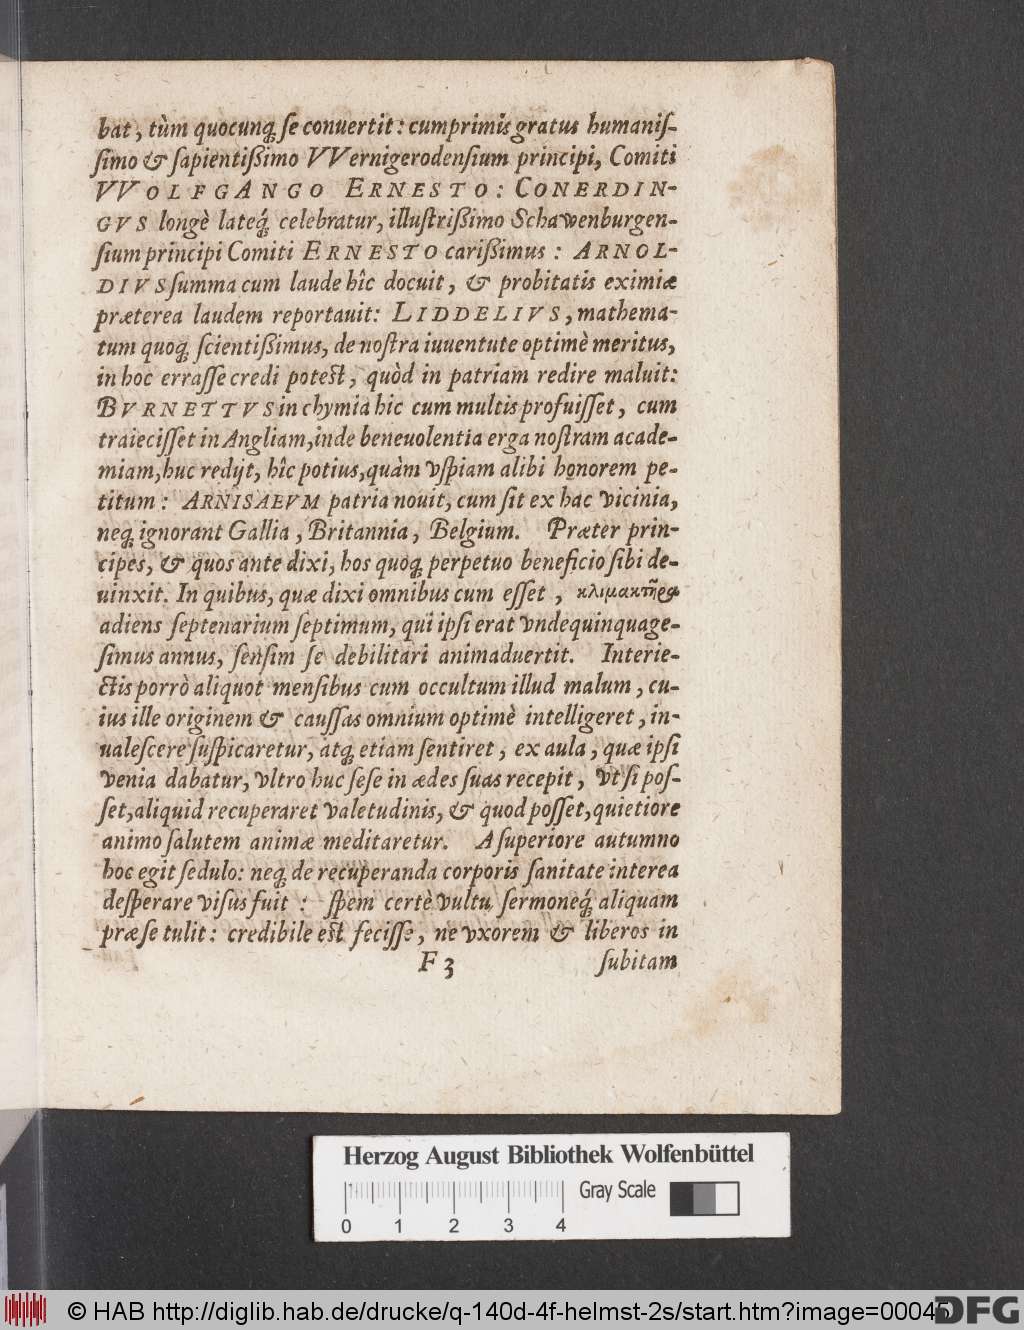 bat, tùm quocunq́ se conuertit: cumprimis gratus humanis-
simo & sapientißimo VVernigerodensium principi, Comiti
VVOLFGANGO ERNESTO: CONERDIN-
GVS longè lateq́ celebratur, illustrißimo Schawenburgen-
sium principi Comiti ERNESTO carißimus: ARNOL-
DIVS summa cum laude hîc docuit, & probitatis eximiæ
præterea laudem reportauit: LIDDELIVS, mathema-
tum quoq́ scientißimus, de nostra iuuentute optimè meritus,
in hoc errasse credi potest, quòd in patriam redire maluit:
BVRNETTVS in chymia hic cum multis profuisset, cum
traiecisset in Angliam, inde beneuolentia erga nostram acade-
miam, huc redijt, hîc potius, quàm vspiam alibi honorem pe-
titum: ARNISAEVM patria nouit, cum sit ex hac vicinia,
neq́ ignorant Gallia, Britannia, Belgium. Præter prin-
cipes, & quos ante dixi, hos quoq́ perpetuo beneficio sibi de-
uinxit. In quibus, quæ dixi omnibus cum esset,
adiens septenarium septimum, qui ipsi erat vndequinquage-
simus annus, sensim se debilitari animaduertit. Interie-
ctis porrò aliquot mensibus cum occultum illud malum, cu-
ius ille originem & caussas omnium optimè intelligeret, in-
ualescere suspicaretur, atq́ etiam sentiret, ex aula, quæ ipsi
venia dabatur, vltro huc sese in ædes suas recepit, vt si pos-
set, aliquid recuperaret valetudinis, & quod posset, quietiore
animo salutem animæ meditaretur. A superiore autumno
hoc egit sedulo: neq́ de recuperanda corporis sanitate interea
desperare visus fuit: spem certè vultu sermoneq́ aliquam
præ se tulit: credibile est fecisse, ne vxorem & liberos in
F 3 subitam
Herzog August Bibliothek Wolfenbüttel
Gray Scale
0 1 2 3 4
© HAB http://diglib.hab.de/drucke/q-140d-4f-helmst-2s/start.htm?image=00045
DFG